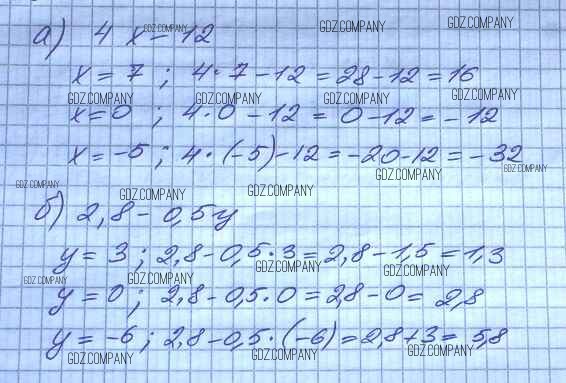 GDZ.COMPANY GDZ.COMPANY GDZ.COMPANY
а) 4 x = 12
x = 7 ; 4 · 7 - 12 = 28 - 12 = 16
GDZ.COMPANY GDZ.COMPANY GDZ.COMPANY GDZ.COMPANY
x = 0 ; 4 · 0 - 12 = 0 - 12 = - 12
x = -5 ; 4 · (-5) - 12 = -20 - 12 = - 32
GDZ.COMPANY GDZ.COMPANY
GDZ.COMPANY GDZ.COMPANY GDZ.COMPANY
б) 2,8 - 0,5y
y = 3 ; 2,8 - 0,5 · 3 = 2,8 - 1,5 = 1,3
GDZ.COMPANY GDZ.COMPANY GDZ.COMPANY GDZ.COMPANY
y = 0 ; 2,8 - 0,5 · 0 = 2,8 - 0 = 2,8
y = -6 ; 2,8 - 0,5 · (-6) = 2,8 + 3 = 5,8
GDZ.COMPANY GDZ.COMPANY GDZ.COMPANY